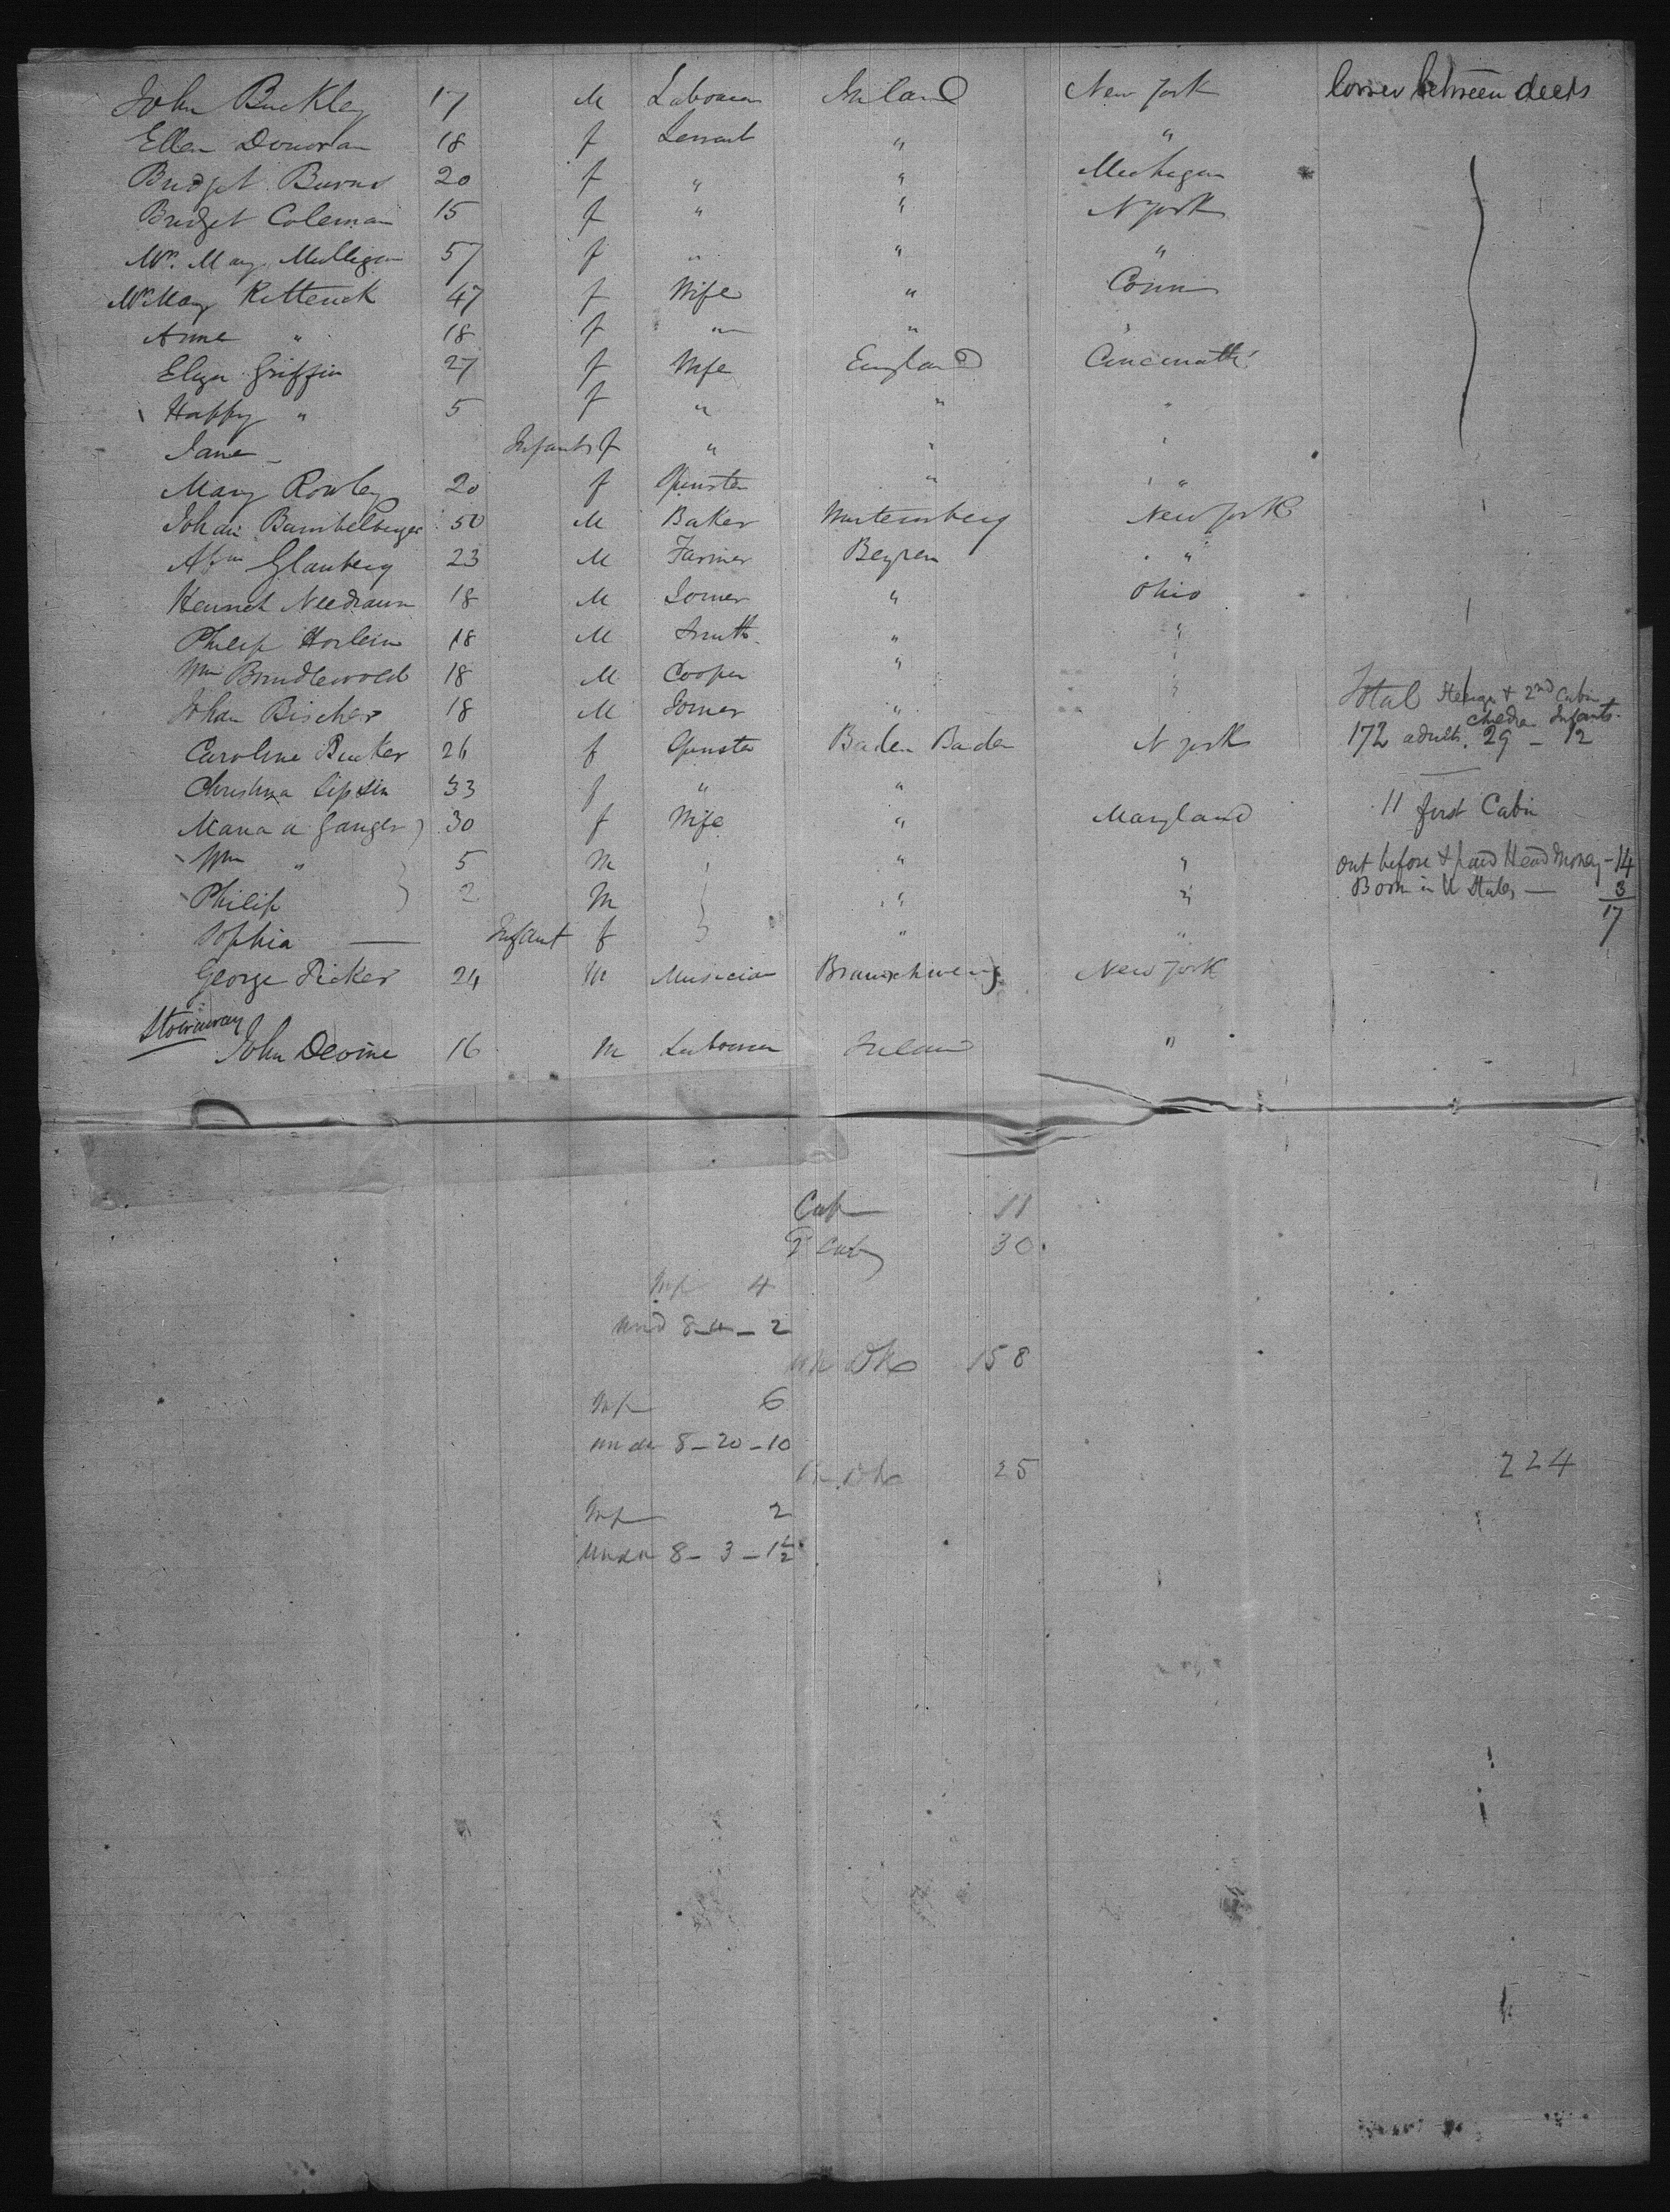 John Buckley 17 M Labourer Ireland New York lower between decks
Ellen Donovan 18 f Servant " "
Bridget Burns 20 f " " Michegan
Bridget Coleman 15 f " " N York
Mrs. Mary Mulligan 57 f " " "
Mrs Mary Kettenek 47 f Wife " Conn
Anne " 18 f " " "
Eliza Griffin 27 f Wife England Cincinatti
Happy " 5 f " " "
Jane Infants f " " "
Mary Rowley 20 f Spinster " "
Johan Bambelberger 50 M Baker Wurtemberg New York
Glauberg 23 M Farmer Beyren "
Needraum 18 M Joiner " Ohio
Philip Horlein 18 M Smith " "
Wm Brindlewold 18 M Cooper " "
Johan Bischer 18 M Joiner " "
Total Steerage & 2nd Cabin
Children Infants
Caroline 26 f Spinster Baden Baden N York 172 adults. 29 - 12
Christina 33 f " "
Maria a Ganger 30 f Wife " Maryland 11 first Cabin
Wm " 5 M " "
out before & paid Head Money - 14
Philip 2 M " "
Born in U States — 3
17
Sophia — Infant f " "
George Ricker 24 M Musician Braunschweig New York
Stowaway
John Devine 16 M Labourer Ireland "
Cab 11
2 Cab 30
Inf 4
und 8-4-2
Dk 158
Inf 6
under 8-20-10
25
224
Inf 2
Under 8-3-1½